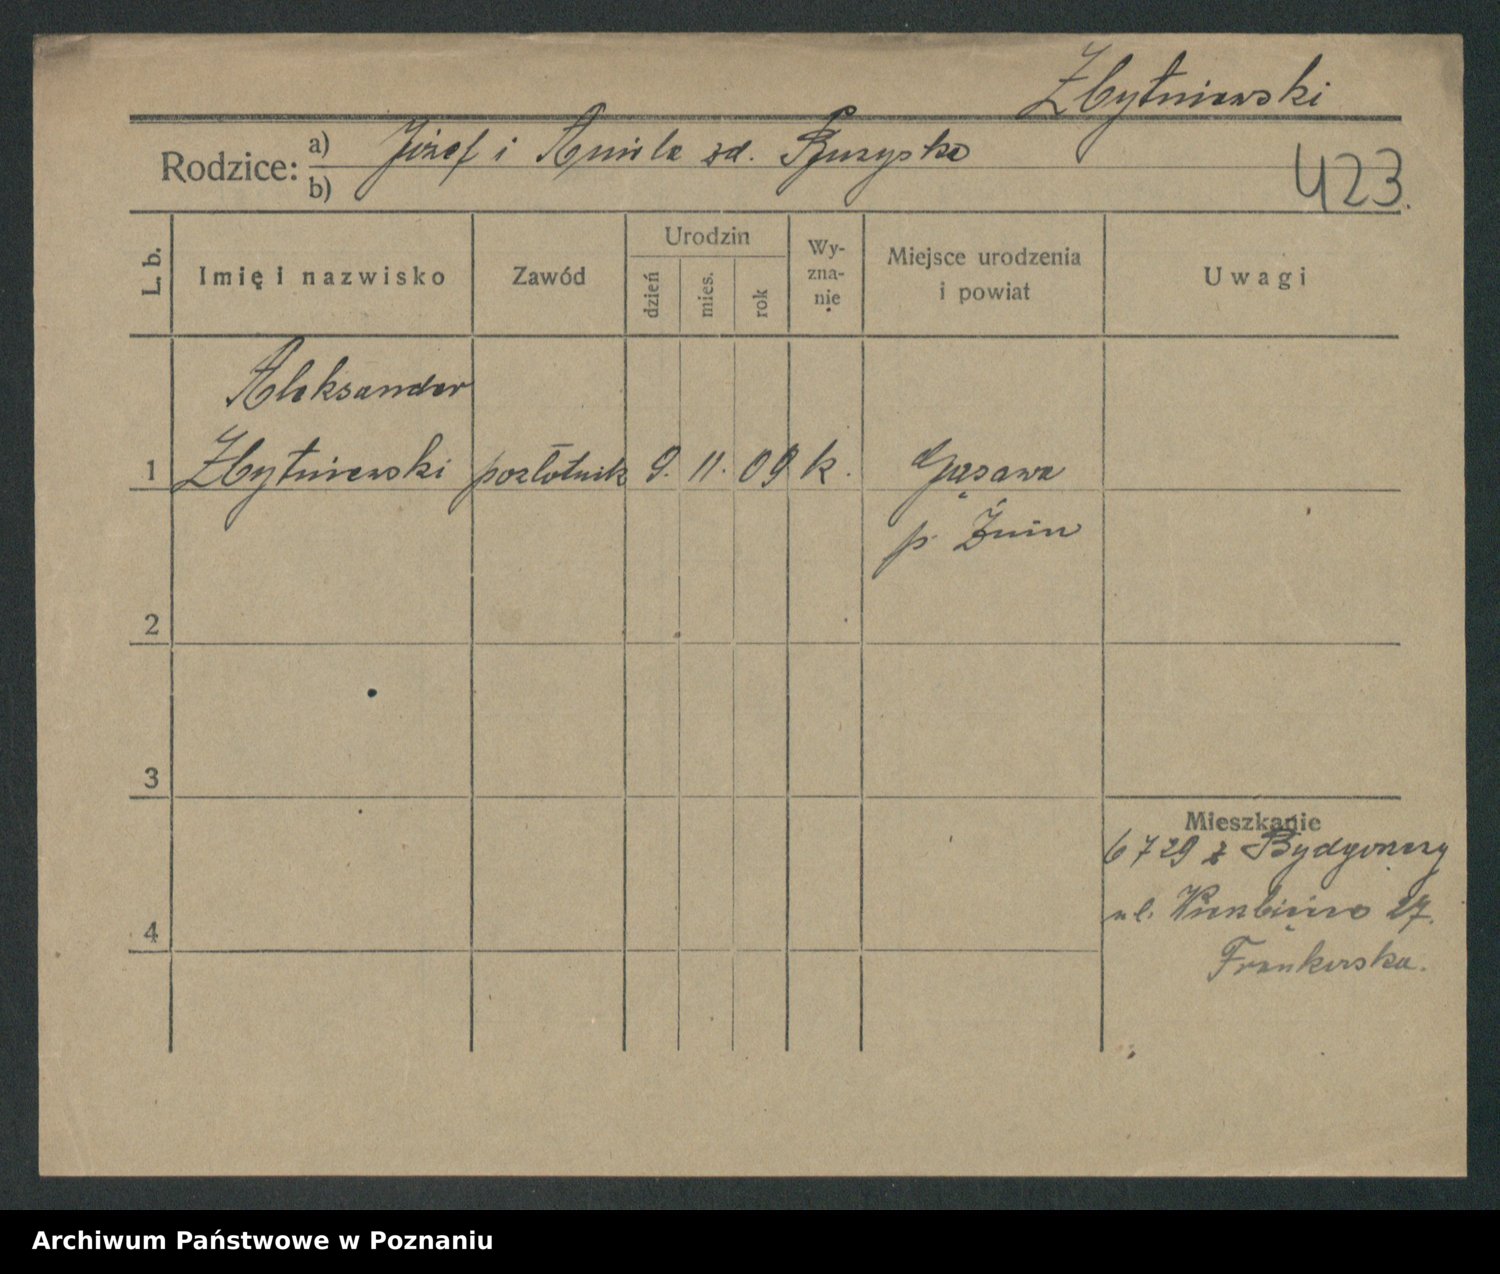 Zbytniewski
Rodzice: a) Józef i Aniela zd.
b)
423.
L. b.
Imię i nazwisko
Zawód
Urodzin
dzień
mies.
rok
Wy-
zna-
nie
Miejsce urodzenia
i powiat
Uwagi
Aleksander
1 Zbytniewski pozłotnik 9. 11. 09 k. Gąsawa
p. Żnin
2
3
4
Mieszkanie
6 7 29 z Bydgoszczy
ul. 27.
Frankowska.
Archiwum Państwowe w Poznaniu